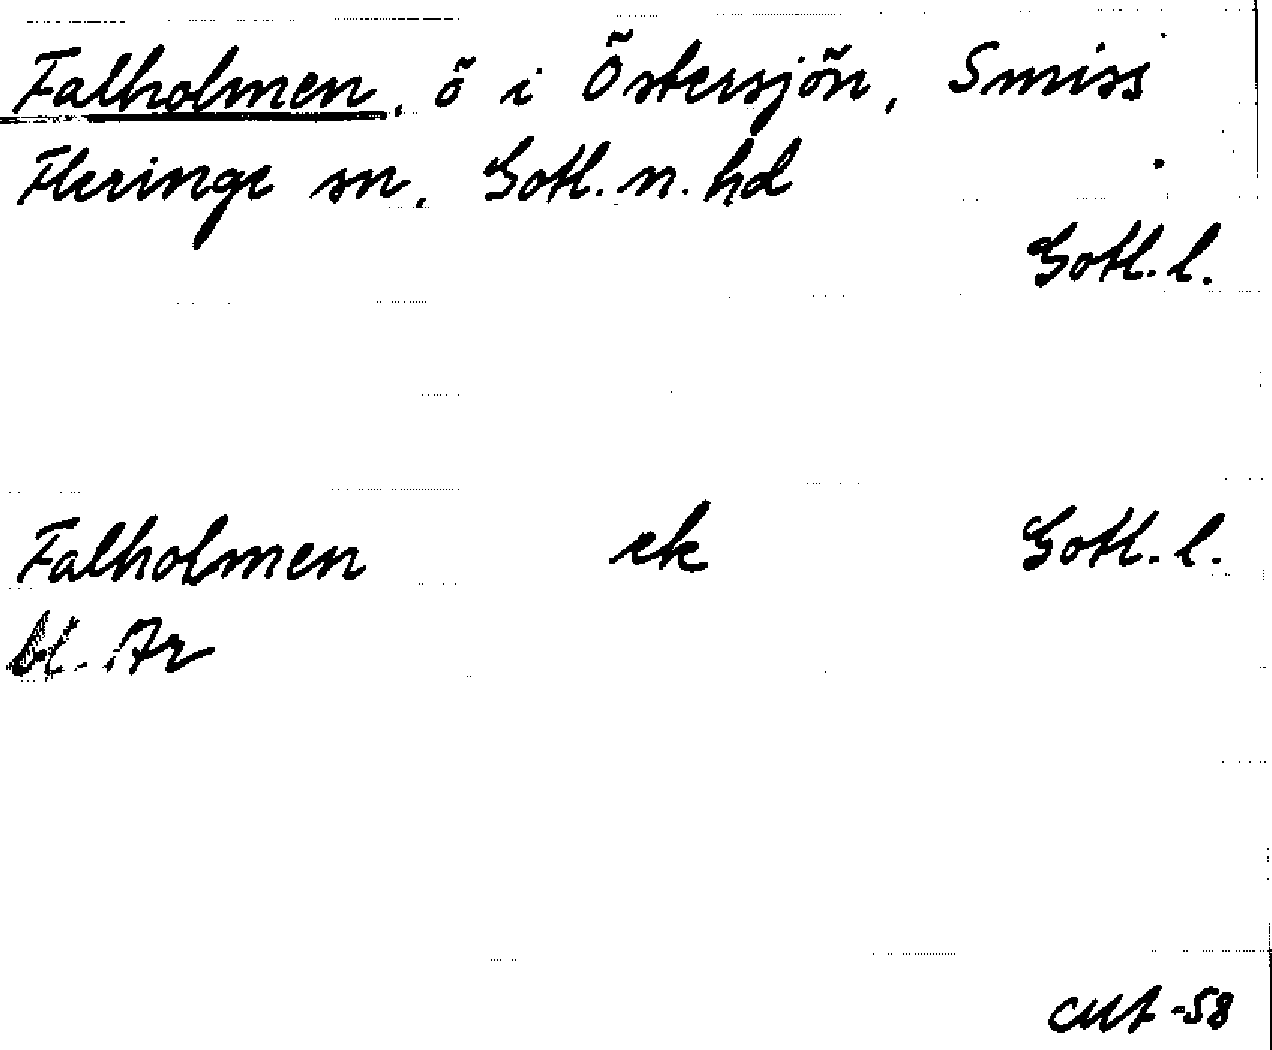 Falholmen, ö i Östersjön, Smiss
Fleringe sn. Gotl. n. hd
Gotl. l.
Falholmen ek Gotl. l.
bl. Ar
CMF -58